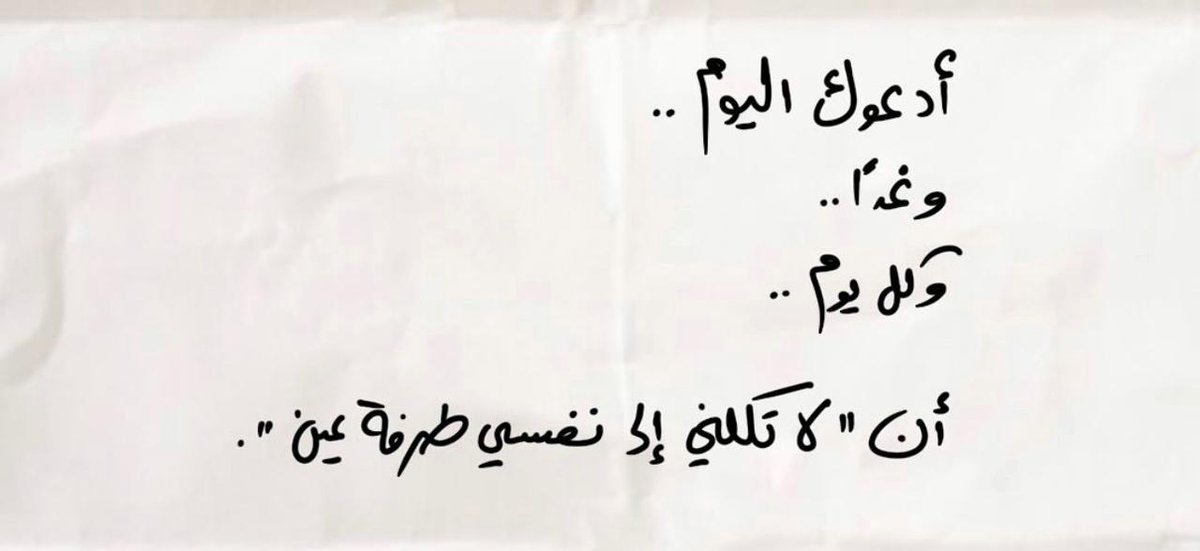 أدعوك اليوم ..
وغدًا ..
وكل يوم ..
أن "لا تكلني إلى نفسي طرفة عين".